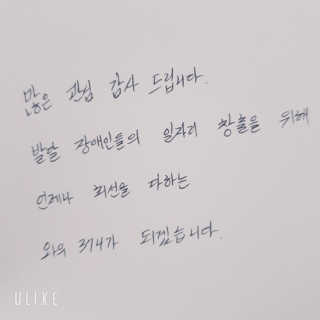 많은 관심 감사 드립니다.
발달 장애인들의 일자리 창출을 위해
언제나 최선을 다하는
와우 374가 되겠습니다.
ULIKE